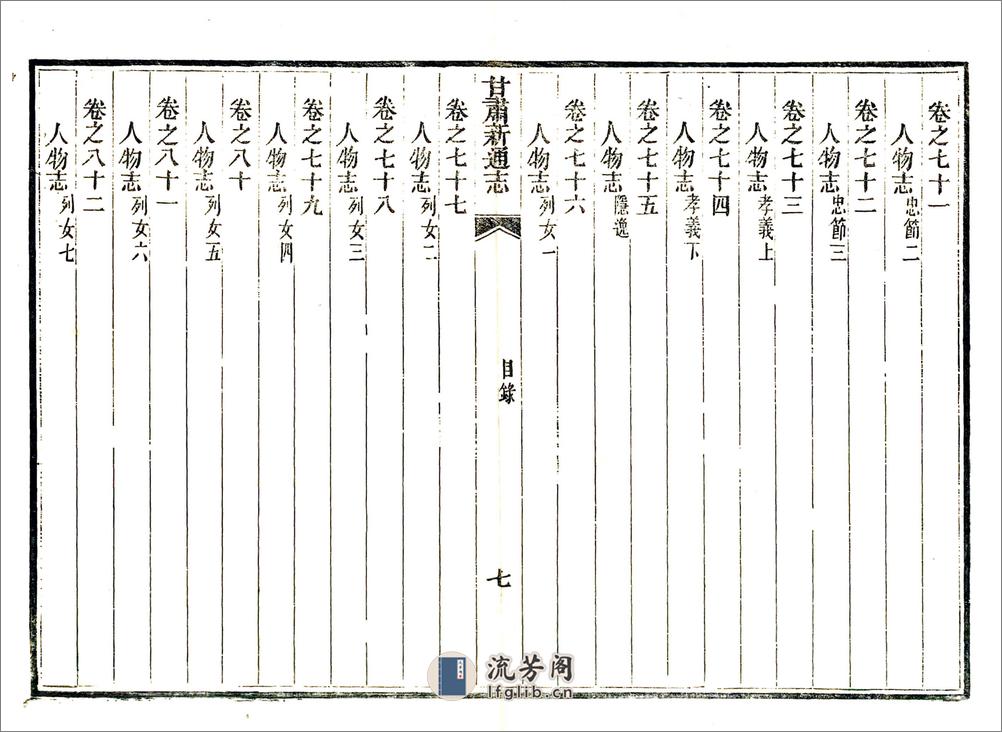 卷之七十一
人物志忠節二
卷之七十二
人物志忠節三
卷之七十三
人物志孝義上
卷之七十四
人物志孝義下
卷之七十五
人物志隱逸
卷之七十六
人物志列女一
甘肅新通志
目錄
七
卷之七十七
人物志列女二
卷之七十八
人物志列女三
卷之七十九
人物志列女四
卷之八十
人物志列女五
卷之八十一
人物志列女六
卷之八十二
人物志列女七
流芳阁
lfglib.cn